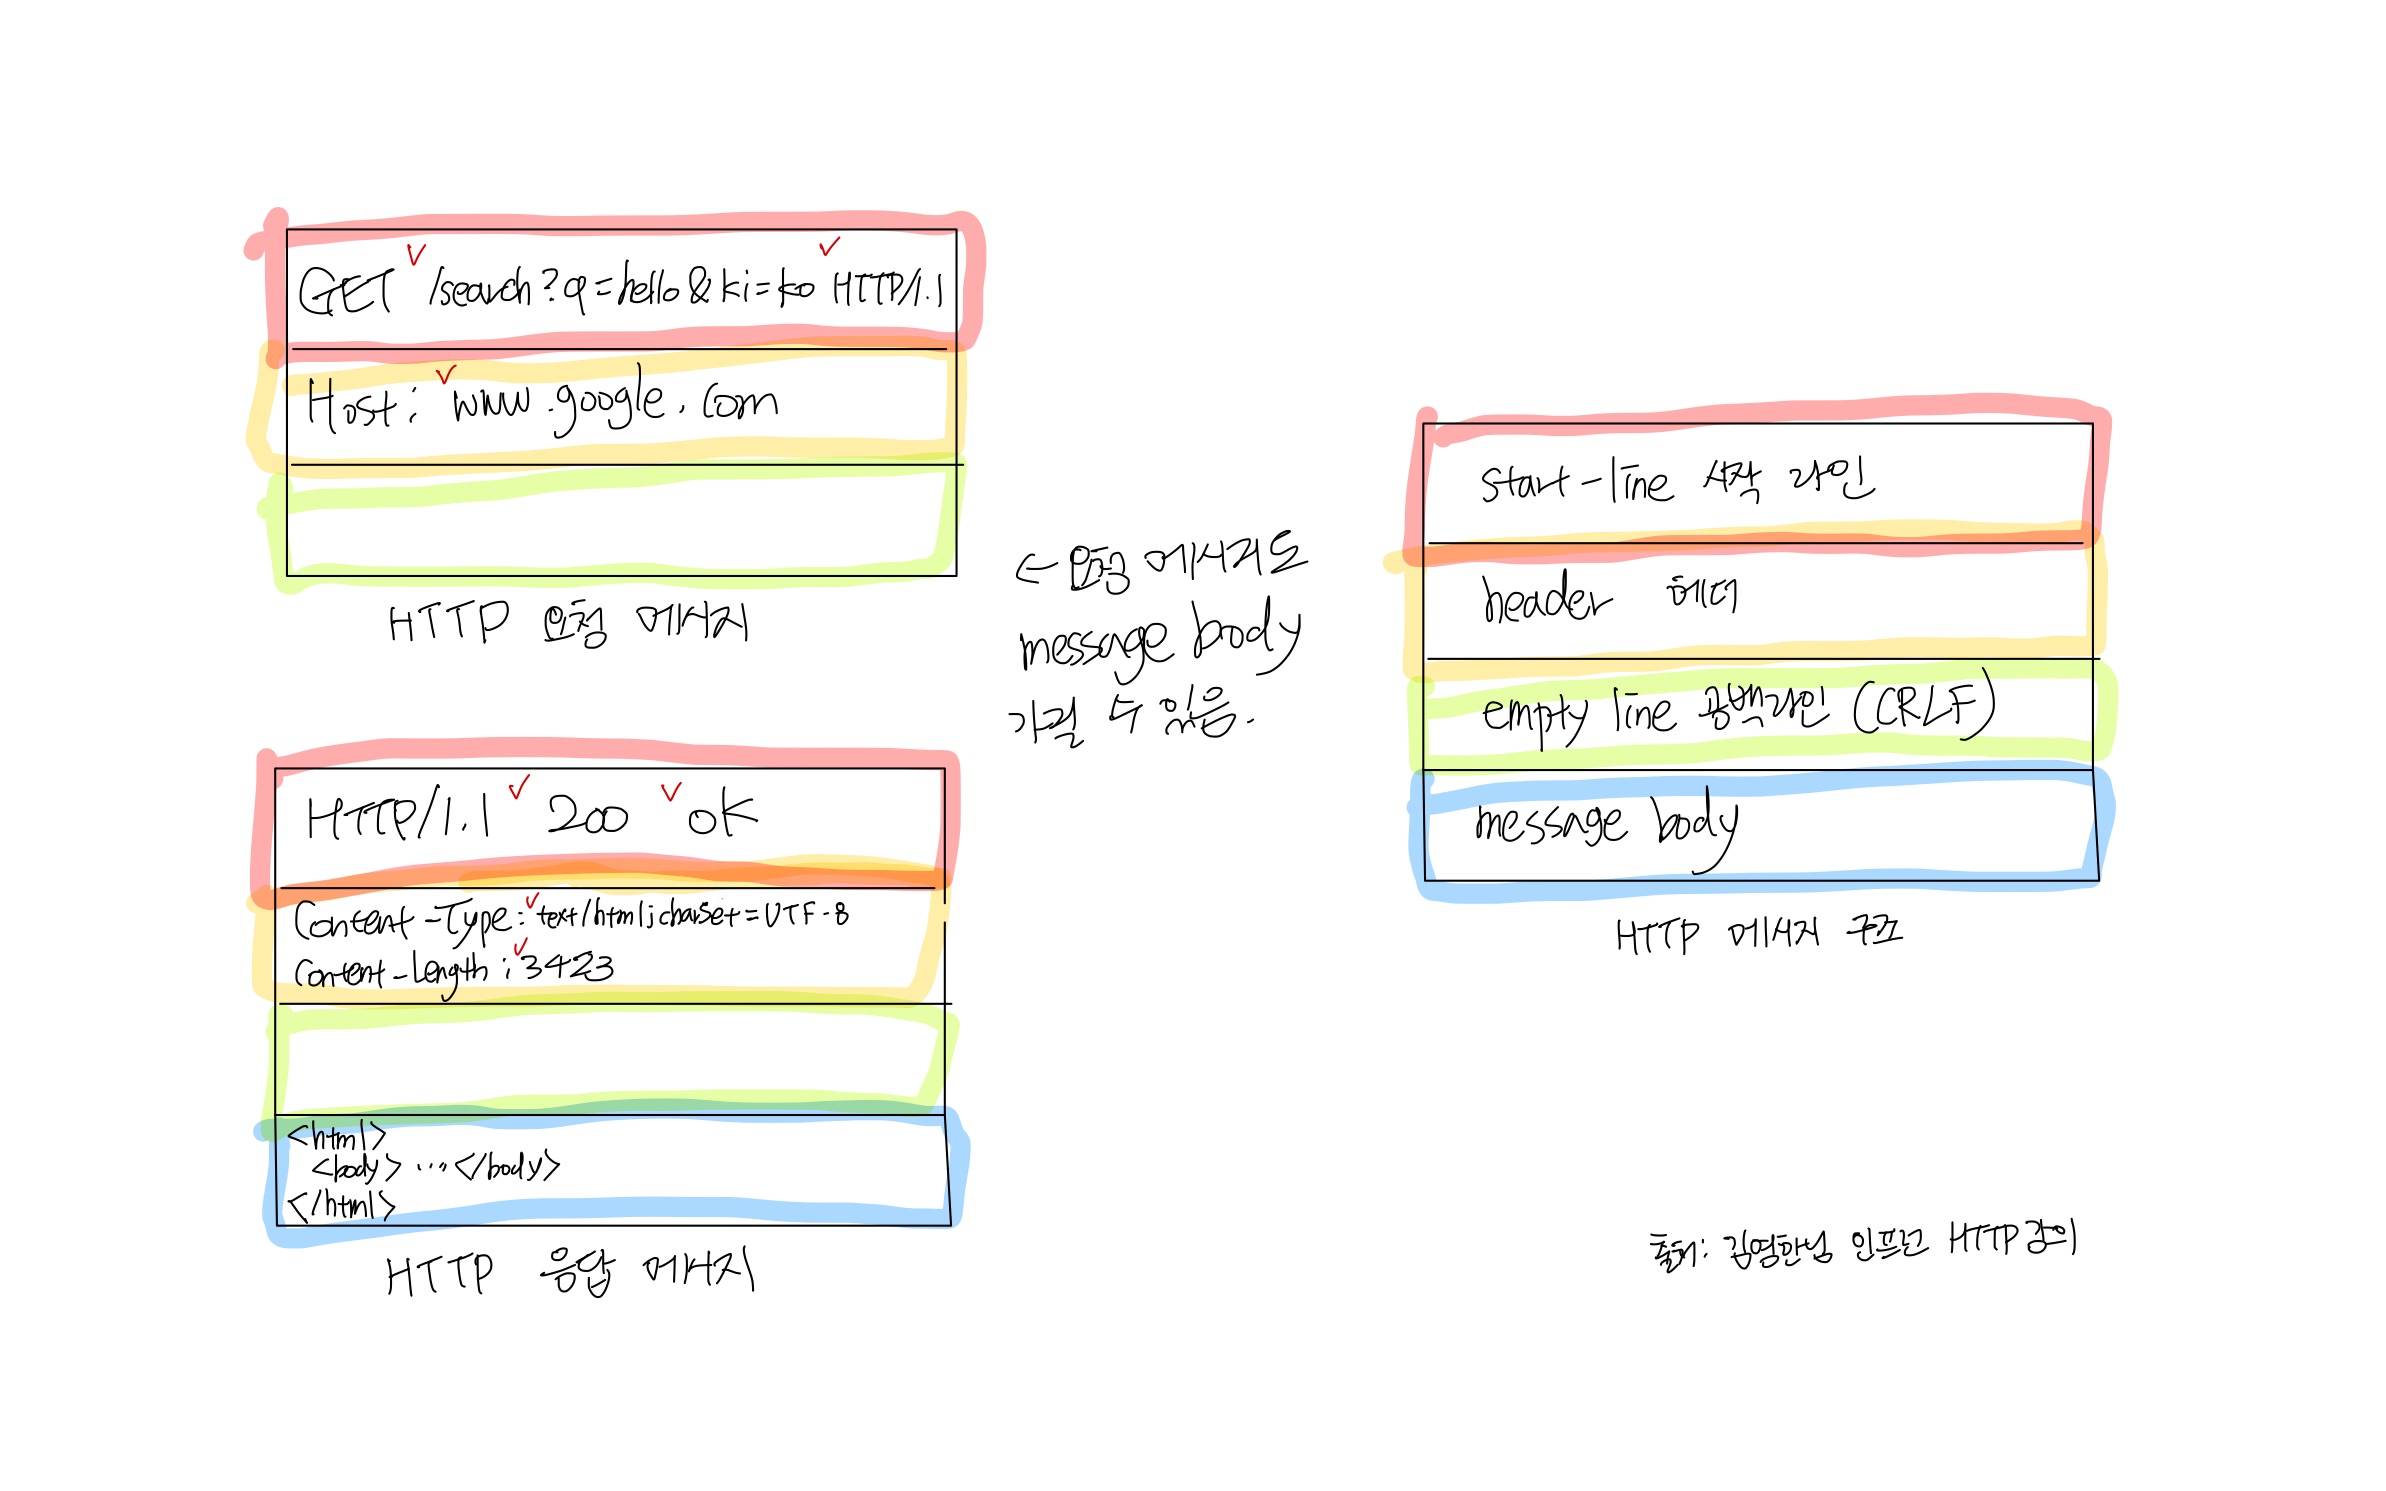 GET /search?q=hello&ki=ko HTTP/1.1
Host: www.google.com
HTTP 요청 메시지
<-요청 메시지도
message body
가질 수 있음.
HTTP/1.1 200 OK
Content-Type: text/html;charset=UTF-8
Content-Length: 3423
<html>
<body> ... </body>
</html>
HTTP 응답 메시지
start-line 시작 라인
header 헤더
empty line 공백라인 (CRLF)
message body
HTTP 메시지 구조
출처: 김영한님 인프런 HTTP강의